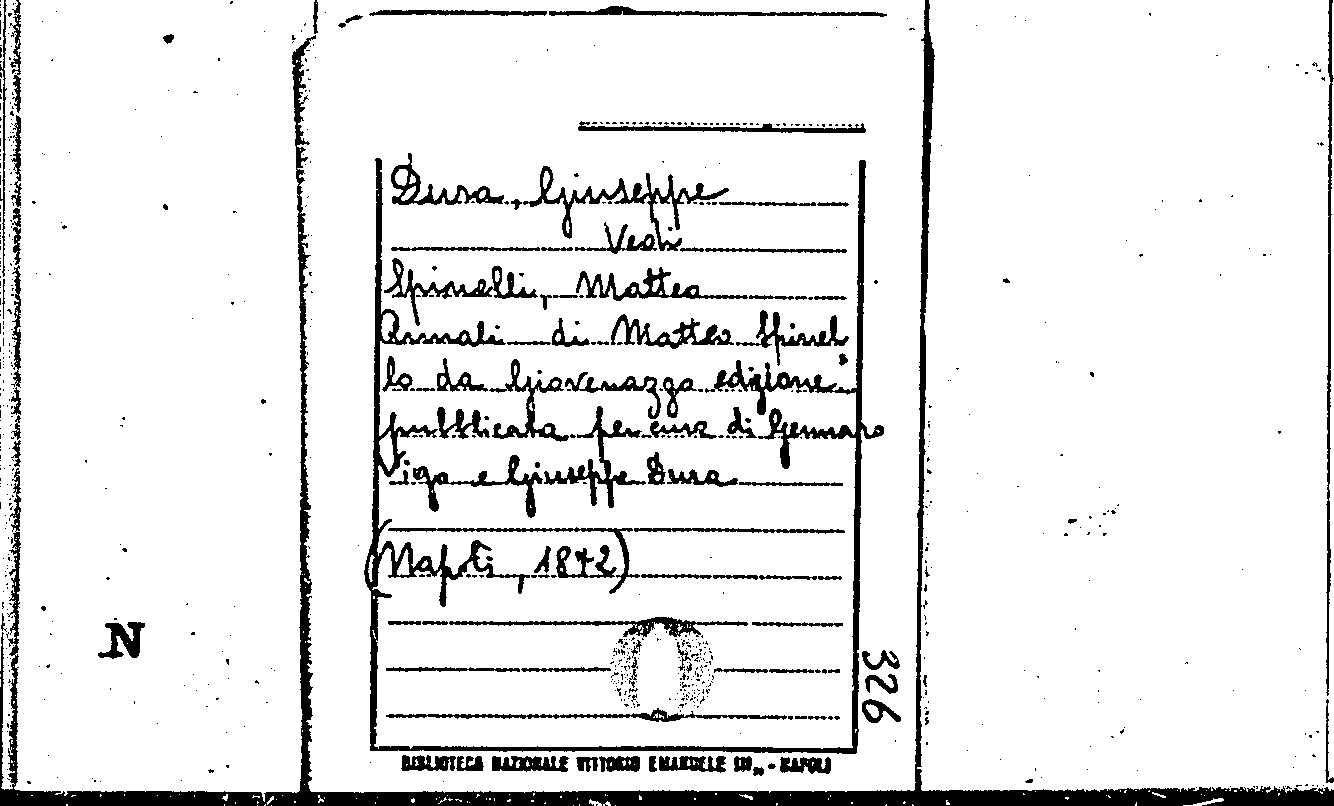 Dura, Giuseppe
Vedi
Spinelli, Matteo
Annali di Matteo Spinel
lo da Giovenazzo edizione
pubblicata per cura di Gennaro
Vigo e Giuseppe Dura
(Napoli, 1842)
N
326
BIBLIOTECA NAZIONALE VITTORIO EMANUELE III,, - NAPOLI